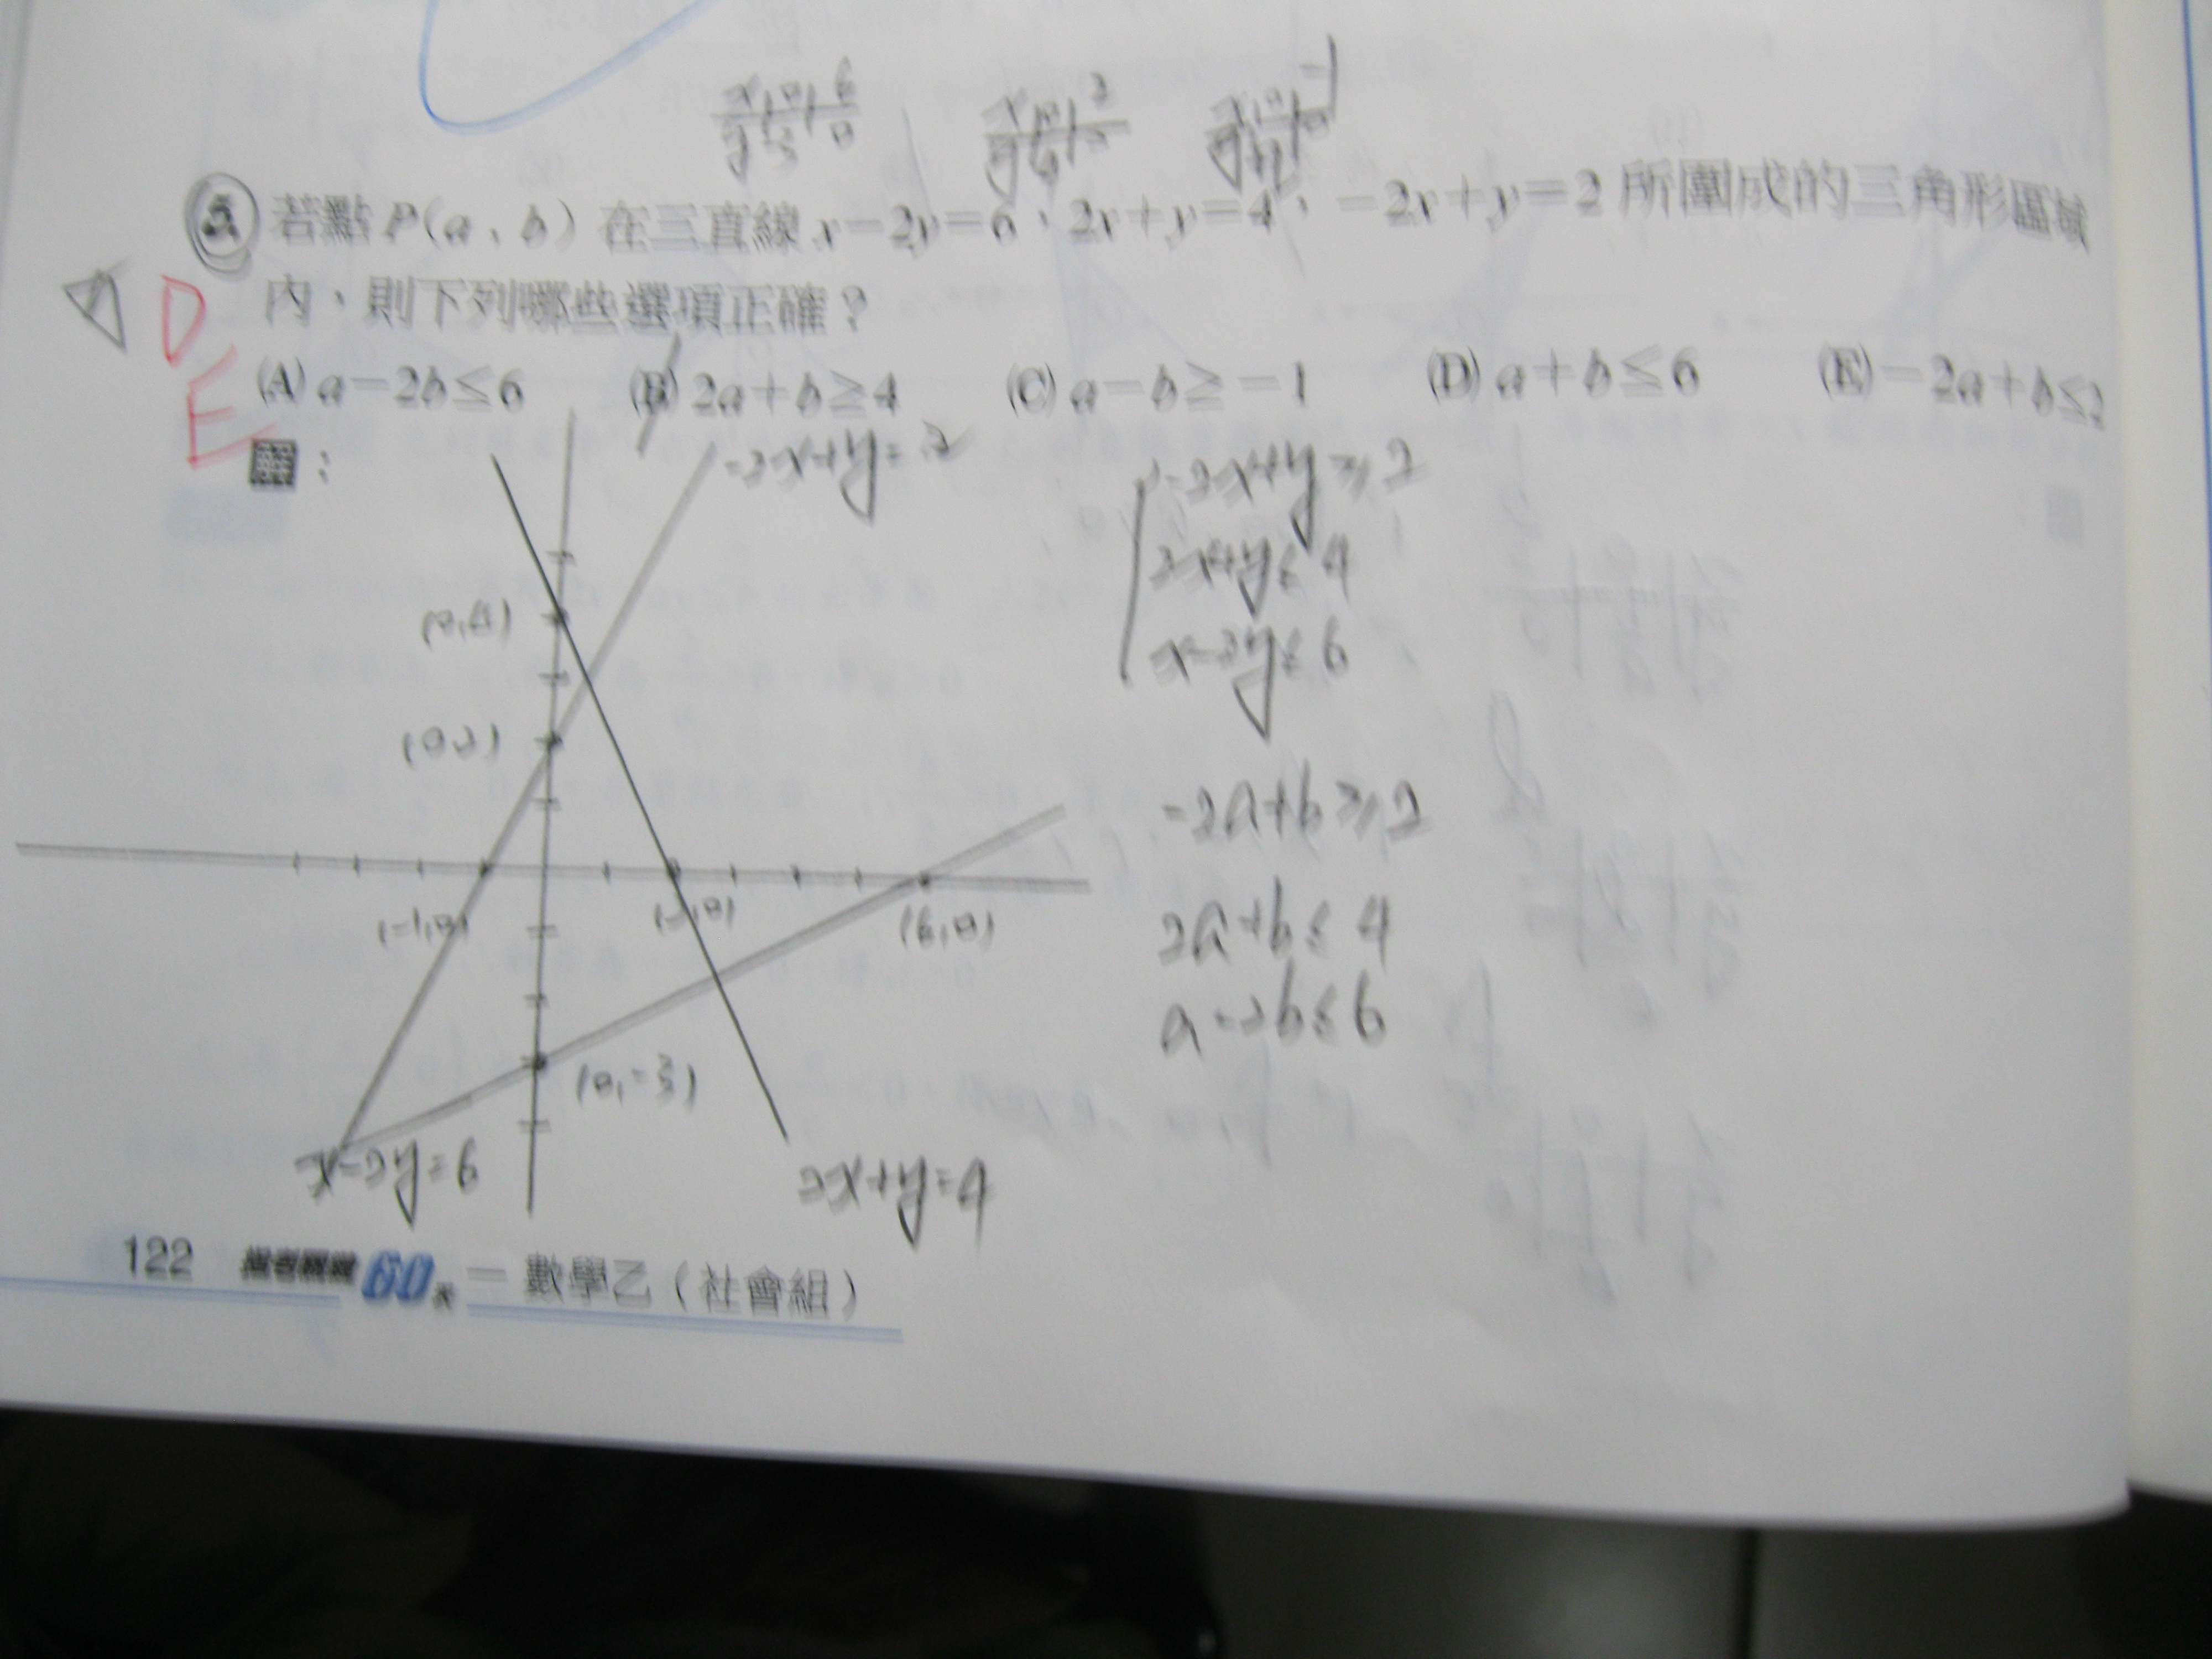 x 0 6
y -3 0
x 0 2
y 4 0
x 0 -1
y 2 0
5. 若點 P(a、b) 在三直線 x－2y＝6、2x＋y＝4、－2x＋y＝2 所圍成的三角形區域
內，則下列哪些選項正確？
D
E
(A) a－2b≤6 (B) 2a＋b≥4 (C) a－b≥－1 (D) a＋b≤6 (E)－2a＋b≤2
解：
-2x+y=2
(0,4)
(0,2)
(-1,0)
(2,0)
(6,0)
(0,-3)
x-2y=6
2x+y=4
-2x+y≥2
2x+y≤4
x-2y≤6
-2a+b≥2
2a+b≤4
a-2b≤6
122 60天 — 數學乙（社會組）